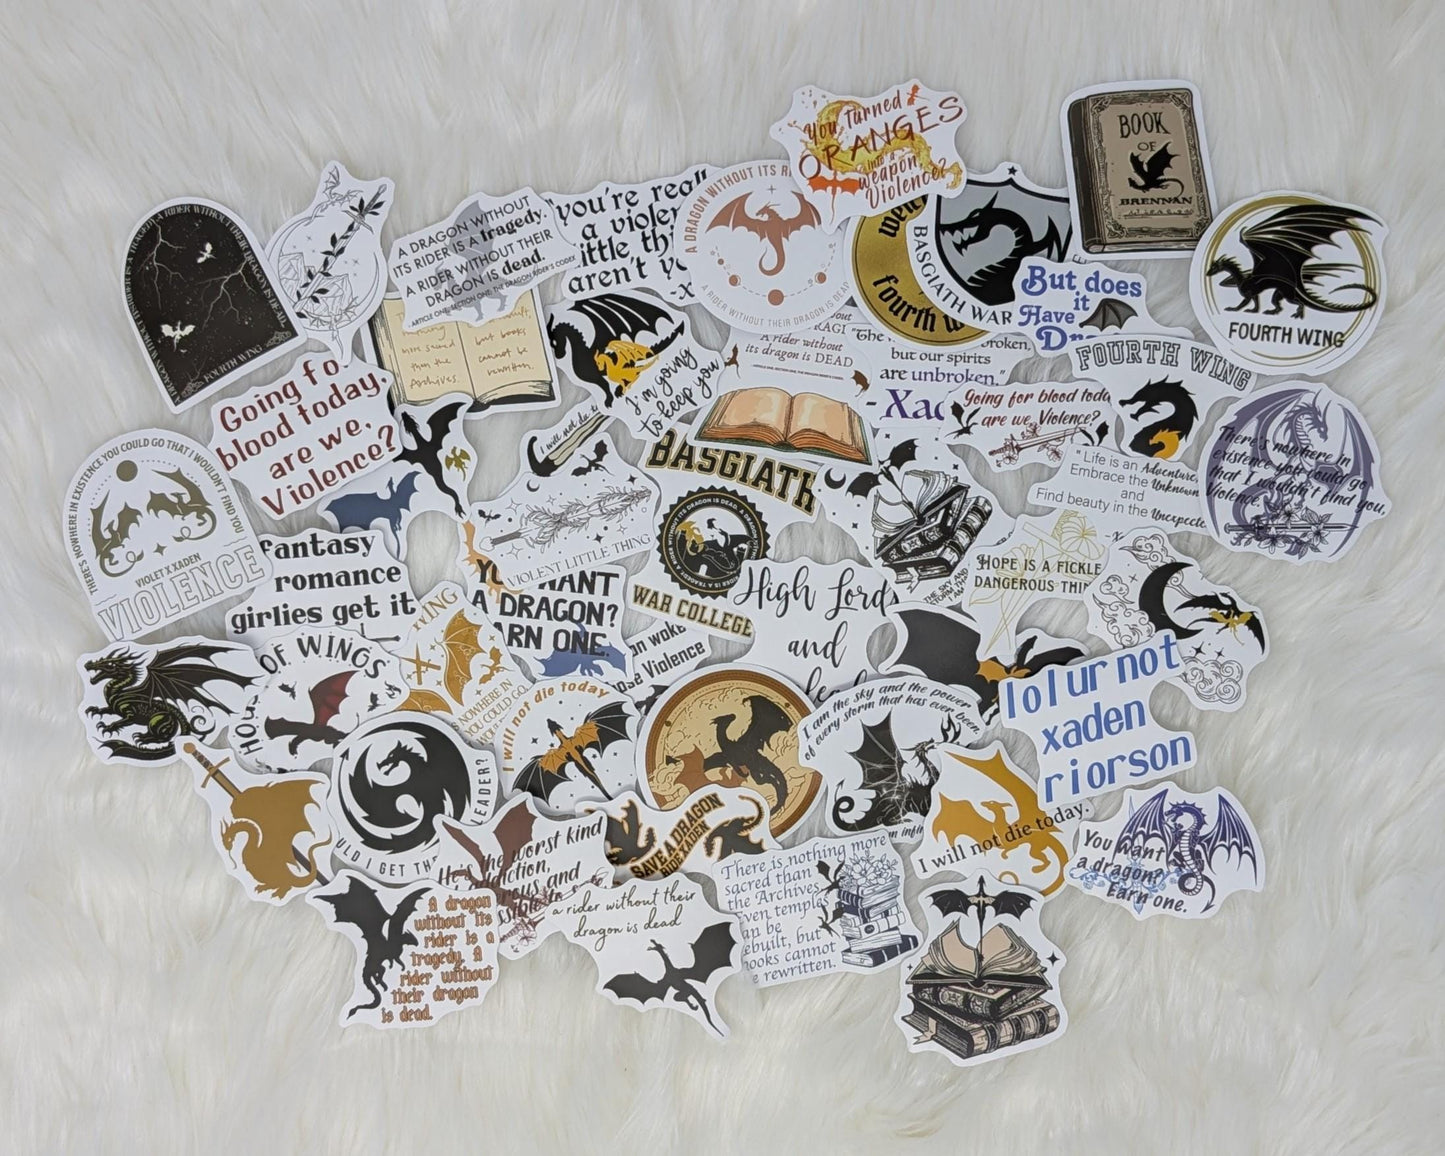 You turned
ORANGES
into a
weapon,
Violence?
BOOK
OF
BRENNAN
A RIDER WITHOUT ITS DRAGON IS DEAD.
FOURTH WING
A DRAGON WITHOUT
ITS RIDER IS A tragedy.
A RIDER WITHOUT THEIR
DRAGON IS dead.
ARTICLE ONE, SECTION ONE, THE DRAGON RIDER'S CODEX
more sacred
than the
Archives.
but books
cannot be
rewritten.
you're reall
a violen
little thi
aren't yo
-X
A DRAGON WITHOUT ITS RI
A RIDER WITHOUT THEIR DRAGON IS DEAD
fourth w
BASGIATH WAR
But does
it
Have
Dra
FOURTH WING
out
RAGI
A rider without
its dragon is DEAD
"The
roken,
but our spirits
are unbroken."
- Xad
FOURTH WING
Going fo
blood today,
are we,
Violence?
I'm going
to keep you
I will not die t
Going for blood toda
are we, Violence?
There's nowhere in
existence you could go
that I wouldn't find you,
Violence
"Life is an Adventure,
Embrace the Unknown
and
Find beauty in the Unexpecte
-X
THERE'S NOWHERE IN EXISTENCE YOU COULD GO THAT I WOULDN'T FIND YOU
VIOLET X XADEN
VIOLENCE
BASGIATH
A RIDER WITHOUT ITS DRAGON IS DEAD. A DRAGON WITHOUT ITS RIDER IS A TRAGEDY
WAR COLLEGE
VIOLENT LITTLE THING
fantasy
romance
girlies get it
YOU WANT
A DRAGON?
ARN ONE.
on woke
ose Violence
High Lords
and
THE SKY AND
STORM
I AM
HOPE IS A FICKLE
DANGEROUS THIN
HOUS OF WINGS
WING
NOWHERE IN
YOU COULD GO
I will not die today
I am the sky and the power
of every storm that has ever been.
am infin
lol ur not
xaden
riorson
ULD I GET THE
LEADER?
He's the worst kind
addiction,
rous and
ssible to
SAVE A DRAGON
RIDE XADEN
I will not die today.
You want
a dragon?
Earn one.
A dragon
without its
rider is a
tragedy. A
rider without
their dragon
is dead.
a rider without their
dragon is dead
There is nothing more
sacred than
the Archives
Even temples
an be
ebuilt, but
ooks cannot
e rewritten.